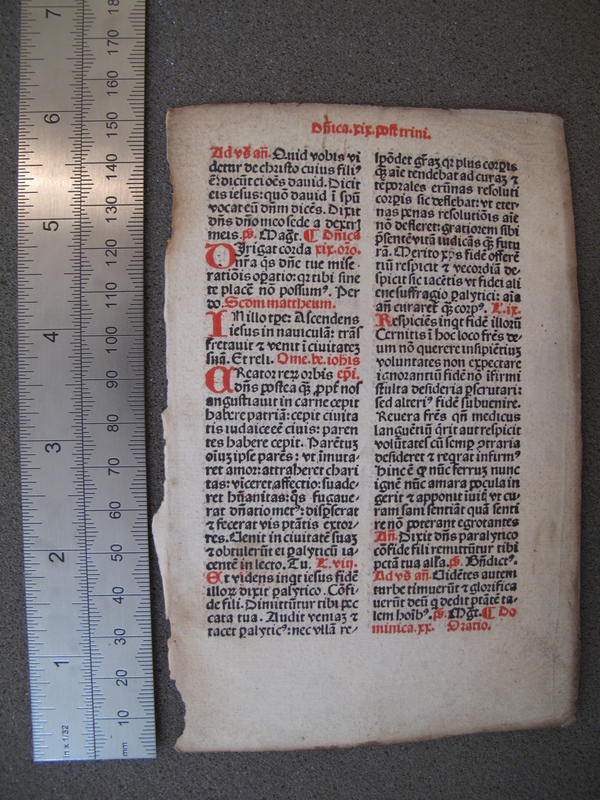 Dñica.xix.post trini.
Ad vs̃ añ. Quid vobis vi
detur de christo cuius filiꝰ
ē: dicũt ei oẽs dauid. Dicit
eis iesus: quõ dauid ĩ spũ
vocat eũ dñm dicẽs. Dixit
dñs dño meo sede a dextrĩ
meis. p̃s. Magr̃. ¶ Dñica
Dirigat corda xix. orõ.
nr̃a q̃s dñe tue mise-
ratiõis oꝑatio: qr tibi sine
te placẽ nõ possumꝰ. Per
do. Scd̃m mattheum.
IN illo tꝑe: Ascendens
iesus in nauiculã: trãs
fretauit ⁊ venit ĩ ciuitatẽ
suã. Et reli. Ome. be. iohis
CReator reꝝ orbis ep̃i.
dñs postea q̃ꝫ ꝓpt̃ nos
angustiauit in carne cepit
habere patriã: cepit ciuita
tis iudaice eẽ ciuis: paren
tes habere cepit. Parẽtuꝫ
oĩuꝫ ipse parẽs: vt ĩmuta-
ret amor: attraheret chari
tas: viceret affectio: suade-
ret hũanitas: q̃s fugaue-
rat dñatio metꝰ: disꝑserat
⁊ fecerat vis ptãtis extor-
res. Uenit in ciuitatẽ suaꝫ
⁊ obtulerũt ei ꝑalyticũ ia-
centẽ in lecto. Tu. L. viij.
Et videns inqt iesus fidẽ
illoꝝ dixit ꝑalytico. Cõfi-
de fili. Dimittũtur tibi pec
cata tua. Audit veniaꝫ ⁊
tacet ꝑalyticꝰ: nec vllã re-
spõdet gr̃aꝫ qr plus corꝑis
q̃ꝫ aĩe tendebat ad curaꝫ ⁊
tẽporales erũnas resoluti
corꝑis sic deflebat: vt eter-
nas penas resolutiõis aĩe
nõ defleret: gratiorem sibi
p̃sentẽ vitã iudicãs q̃ꝫ futu
rã. Merito xp̃s fidẽ offerẽ
tiũ respicit ⁊ vecordiã de-
spicit sic iacẽtis vt fidei ali
ene suffragio ꝑalytici: aĩa
añ curaret̃ q̃ꝫ corpꝰ. L. ix.
Respiciẽs inqt fidẽ illorũ
Cernitis ĩ hoc loco frẽs de-
um nõ querere insipiẽtiuꝫ
voluntates non expectare
ignorantiũ fidẽ nõ ifirmi
stulta desideria ꝑscrutari:
sed alteriꝰ fidẽ subuenire.
Reuera frẽs qñ medicus
languẽtiũ q̃rit aut respicit
volũtates cũ semꝑ ꝯtraria
desideret ⁊ reqrat infirmꝰ
hinc ẽ ꝙ nũc ferruꝫ nunc
ignẽ nũc amara pocula in
gerit ⁊ apponit iuitꝭ vt cu-
ram sani sentiãt quã senti
re nõ poterant egrotantes
Añ. Dixit dñs paralytico
cõfide fili remittũtur tibi
pctã tua alla. p̃s. Bñdictꝰ.
Ad vs̃ añ Uidẽtes autem
turbe timuerũt ⁊ glorifica
uerũt deũ q̃ dedit ptãtẽ ta-
lem hoĩbꝰ. p̃s. Mgr̃. ¶ Do
minica.xx. Oratio.
7
6
5
4
3
2
1
180
170
160
150
140
130
120
110
100
90
80
70
60
50
40
30
20
10
in x 1/32
mm